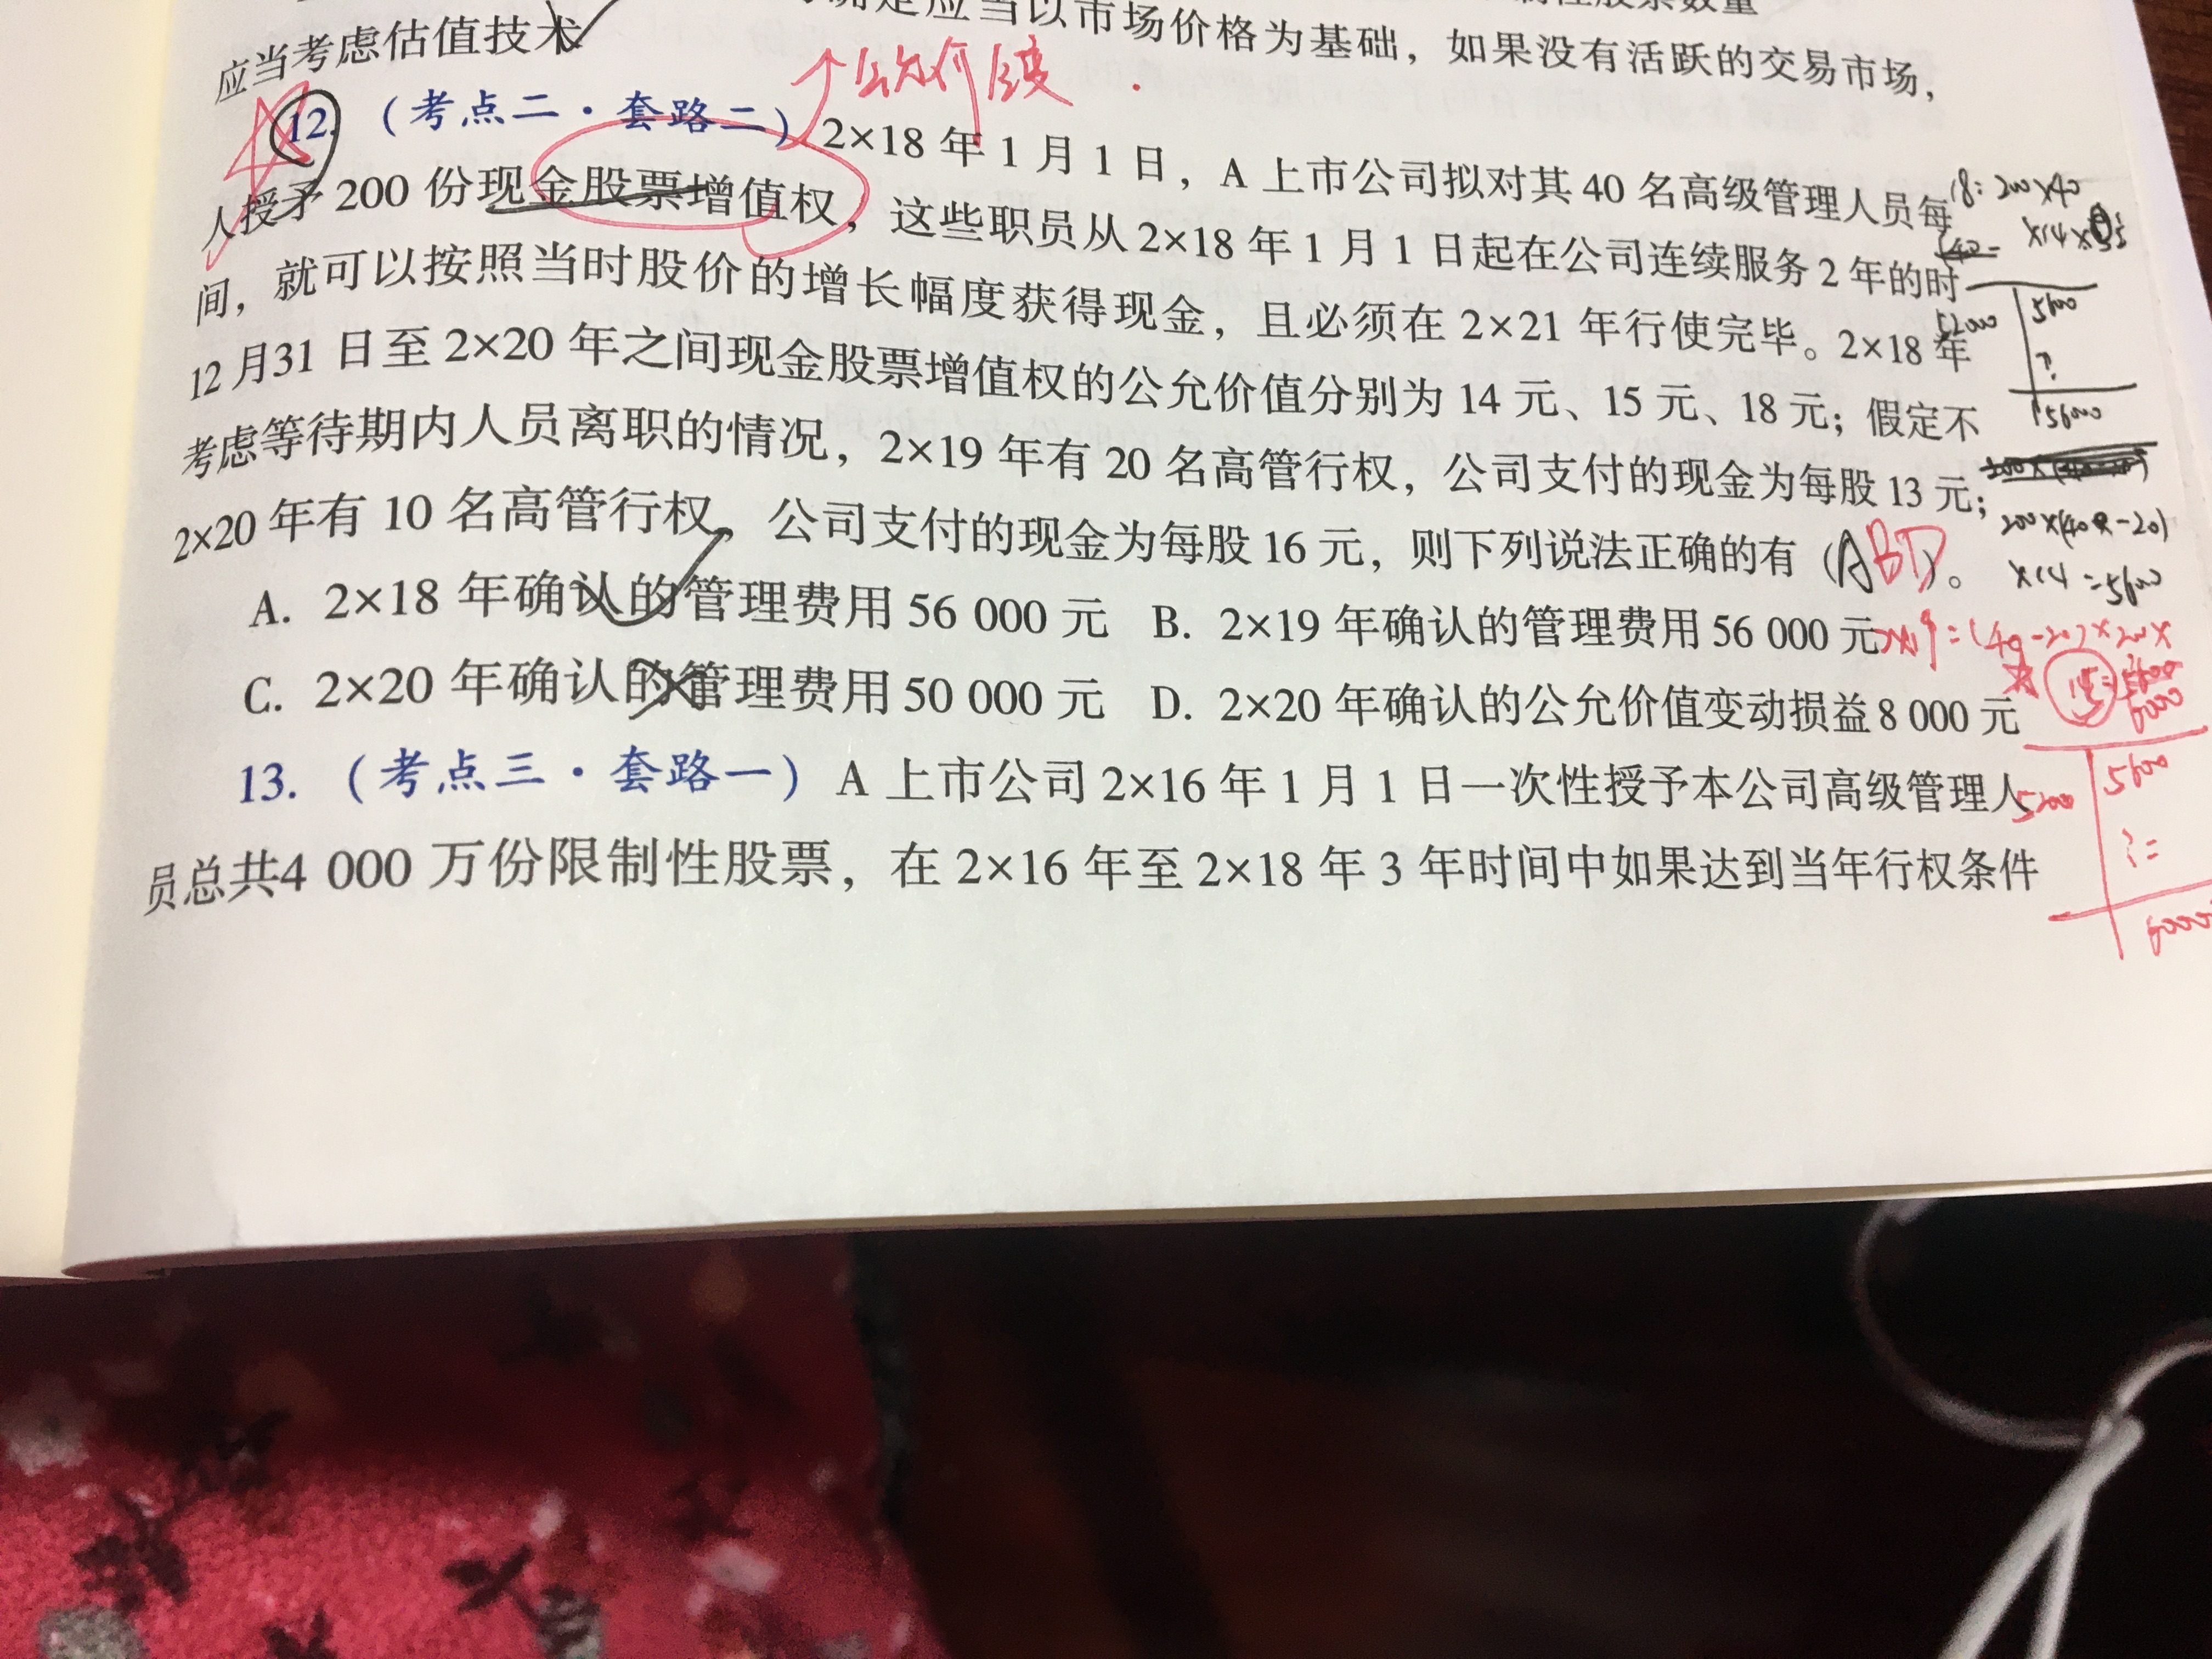 应当以市场价格为基础，如果没有活跃的交易市场，
应当考虑估值技术
↑公允价值变
12. （考点二·套路二）2×18 年 1 月 1 日，A 上市公司拟对其 40 名高级管理人员每
人授予 200 份现金股票增值权，这些职员从 2×18 年 1 月 1 日起在公司连续服务 2 年的时
间，就可以按照当时股价的增长幅度获得现金，且必须在 2×21 年行使完毕。2×18 年
12 月31 日至 2×20 年之间现金股票增值权的公允价值分别为 14 元、15 元、18 元；假定不
考虑等待期内人员离职的情况，2×19 年有 20 名高管行权，公司支付的现金为每股 13 元；
2×20 年有 10 名高管行权，公司支付的现金为每股 16 元，则下列说法正确的有（ABD）。
A. 2×18 年确认的管理费用 56 000 元 B. 2×19 年确认的管理费用 56 000 元
C. 2×20 年确认的管理费用 50 000 元 D. 2×20 年确认的公允价值变动损益 8 000 元
13. （考点三·套路一）A 上市公司 2×16 年 1 月 1 日一次性授予本公司高级管理人
员总共4 000 万份限制性股票，在 2×16 年至 2×18 年 3 年时间中如果达到当年行权条件
18: 200×40
52000
?
200×(40-20)
×14
?=